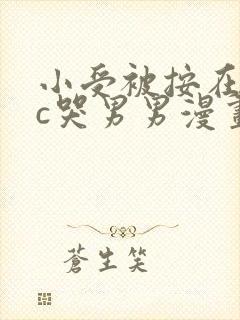 小受被按在
c哭男男漫畫
蒼生笑